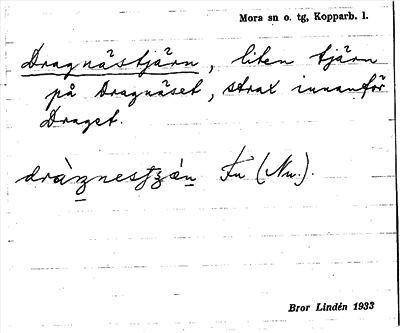 Mora sn o. tg, Kopparb. l.
Dragnästjärn, liten tjärn
på Dragnäset, strax innanför
Draget.
Fu (Nu.).
Bror Lindén 1933